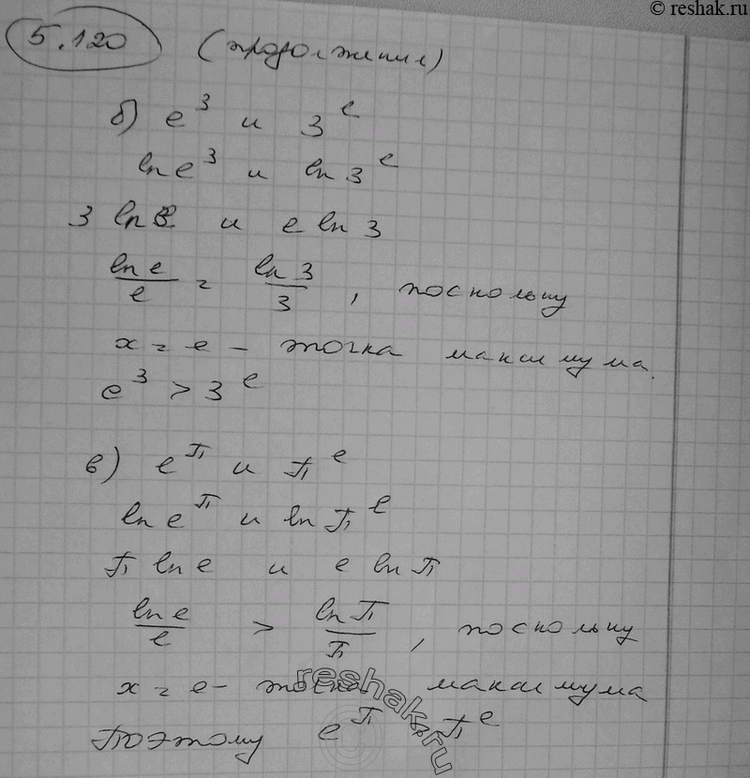 © reshak.ru
5.120 (продолжение)
б) e^3 и 3^e
ln e^3 и ln 3^e
3 ln e и e ln 3
ln e / e = ln 3 / 3, поскольку
x = e - точка максимума.
e^3 > 3^e
в) e^π и π^e
ln e^π и ln π^e
π ln e и e ln π
ln e / e > ln π / π, поскольку
x = e - точка максимума
Поэтому e^π > π^e
reshak.ru